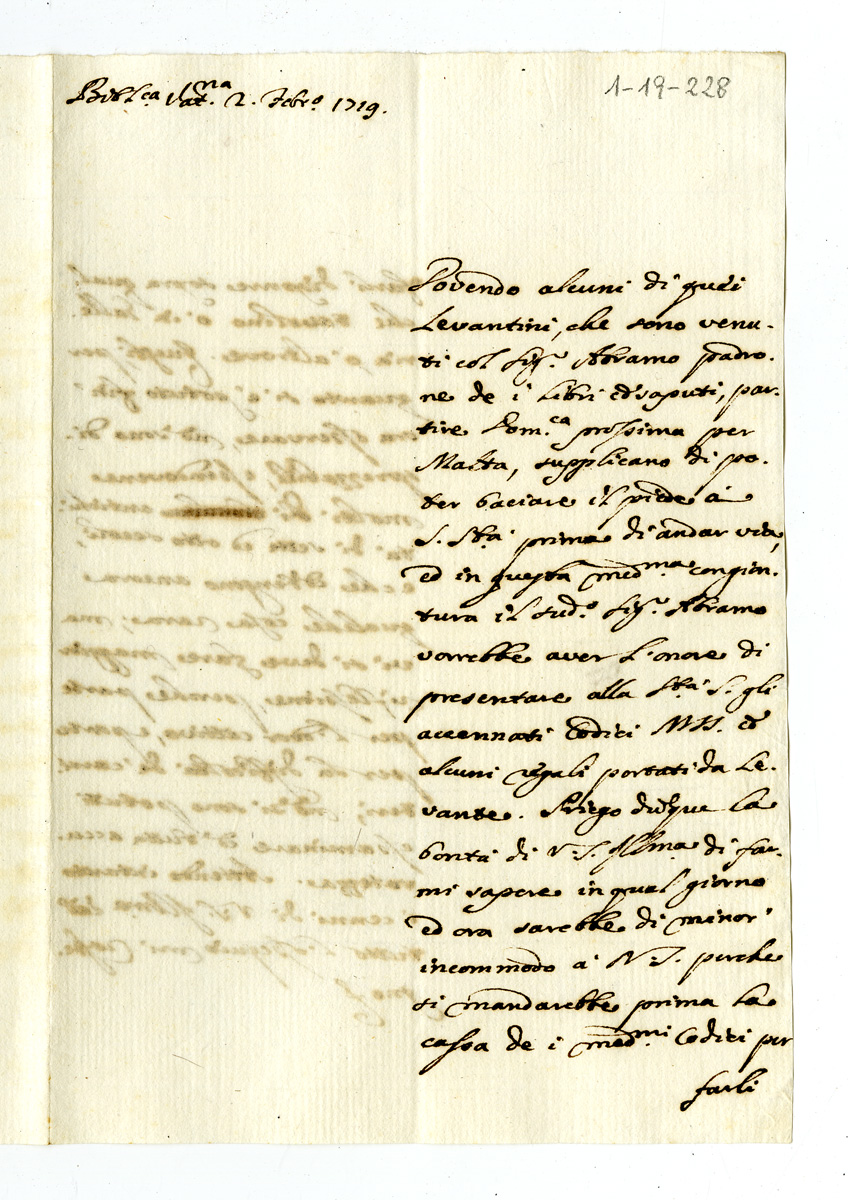 Bibl.ca Vat.na 2. Febr.o 1719.
1-19-228
Dovendo alcuni di quei
Levantini, che sono venu-
ti col Sig.r Abramo padro-
ne de i libri saputi, par-
tire Dom.ca prossima per
Malta, supplicano di po-
ter baciare il piede à
S. Stà prima di andar via,
ed in questa med.ma congion-
tura il sud.o Sig.r Abramo
vorrebbe aver l'onore di
presentare alla Stà S. gli
accennati Codici MSS. et
alcuni regali portati da Le-
vante. Priego dunque la
bontà di V.S. Ill.ma di far-
mi sapere in qual giorno
ed ora sarebbe di minor
incommodo à N.S. perche
si mandarebbe prima la
cassa de i med.mi Codici per
farli